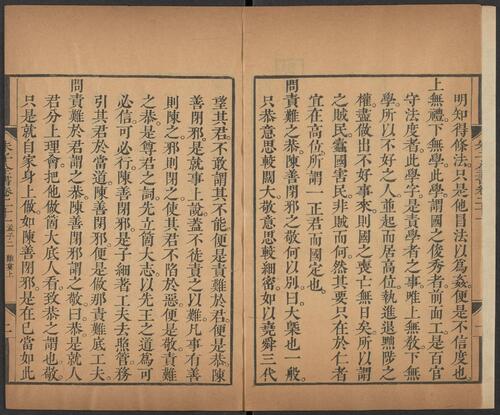 明知得條法只是他冒法以爲姦便是不信度也
上無禮下無學此學謂國之俊秀者前面工是百官
守法度者此學字是責學者之事唯上無敎下無
學所以不好之人並起而居高位執進退黜陟之
權盡做出不好事來則國之喪亡無日矣所以謂
之賊民蠧國害民非賊而何然其要只在於仁者
宜在高位所謂一正君而國定也
問責難之恭陳善閉邪之敬何以別曰大槩也一般
只恭意思較闊大敬意思較細密如以堯舜三代
望其君不敢謂其不能便是責難於君便是恭陳
善閉邪是就事上說蓋不徒責之以難凡事有善
則陳之邪則閉之使其君不陷於惡便是敬責難
之恭是尊君之詞先立箇大志以先王之道爲可
必信可必行陳善閉邪是子細著工夫去照管務
引其君於當道陳善閉邪便是做那責難底工夫
問責難於君謂之恭陳善閉邪謂之敬曰恭是就人
君分上理會把他做箇大底人看致恭之謂也敬
只是就自家身上做如陳善閉邪是在己當如此